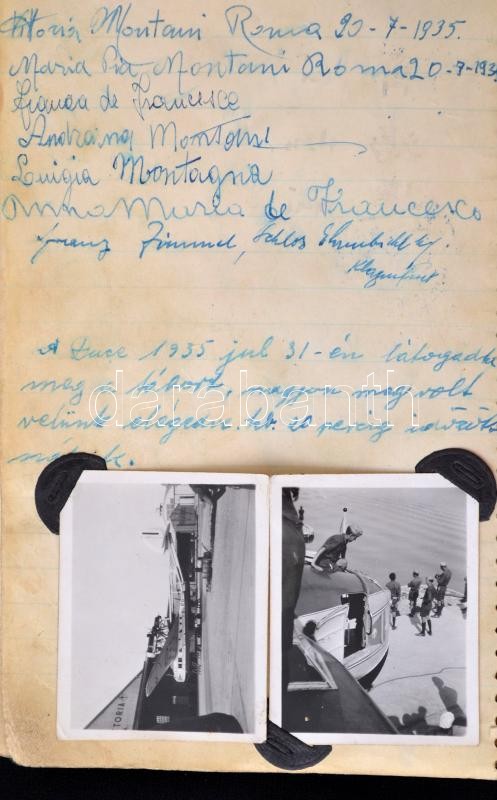 Vittoria Montani Roma 20-7-1935.
Maria Pia Montani Roma 20-7-193
Franca de Francesco
Andreina Montani
Luigia Montagna
Anna Maria de Francesco
Franz Zimmel, Schloß
Klagenfurt
A Duce 1935 jul 31-én látogatta
meg a tábort, nagyon meg volt
velünk elégedve. kb. 20 percig időzött
nálunk.
darabanth
TORIA